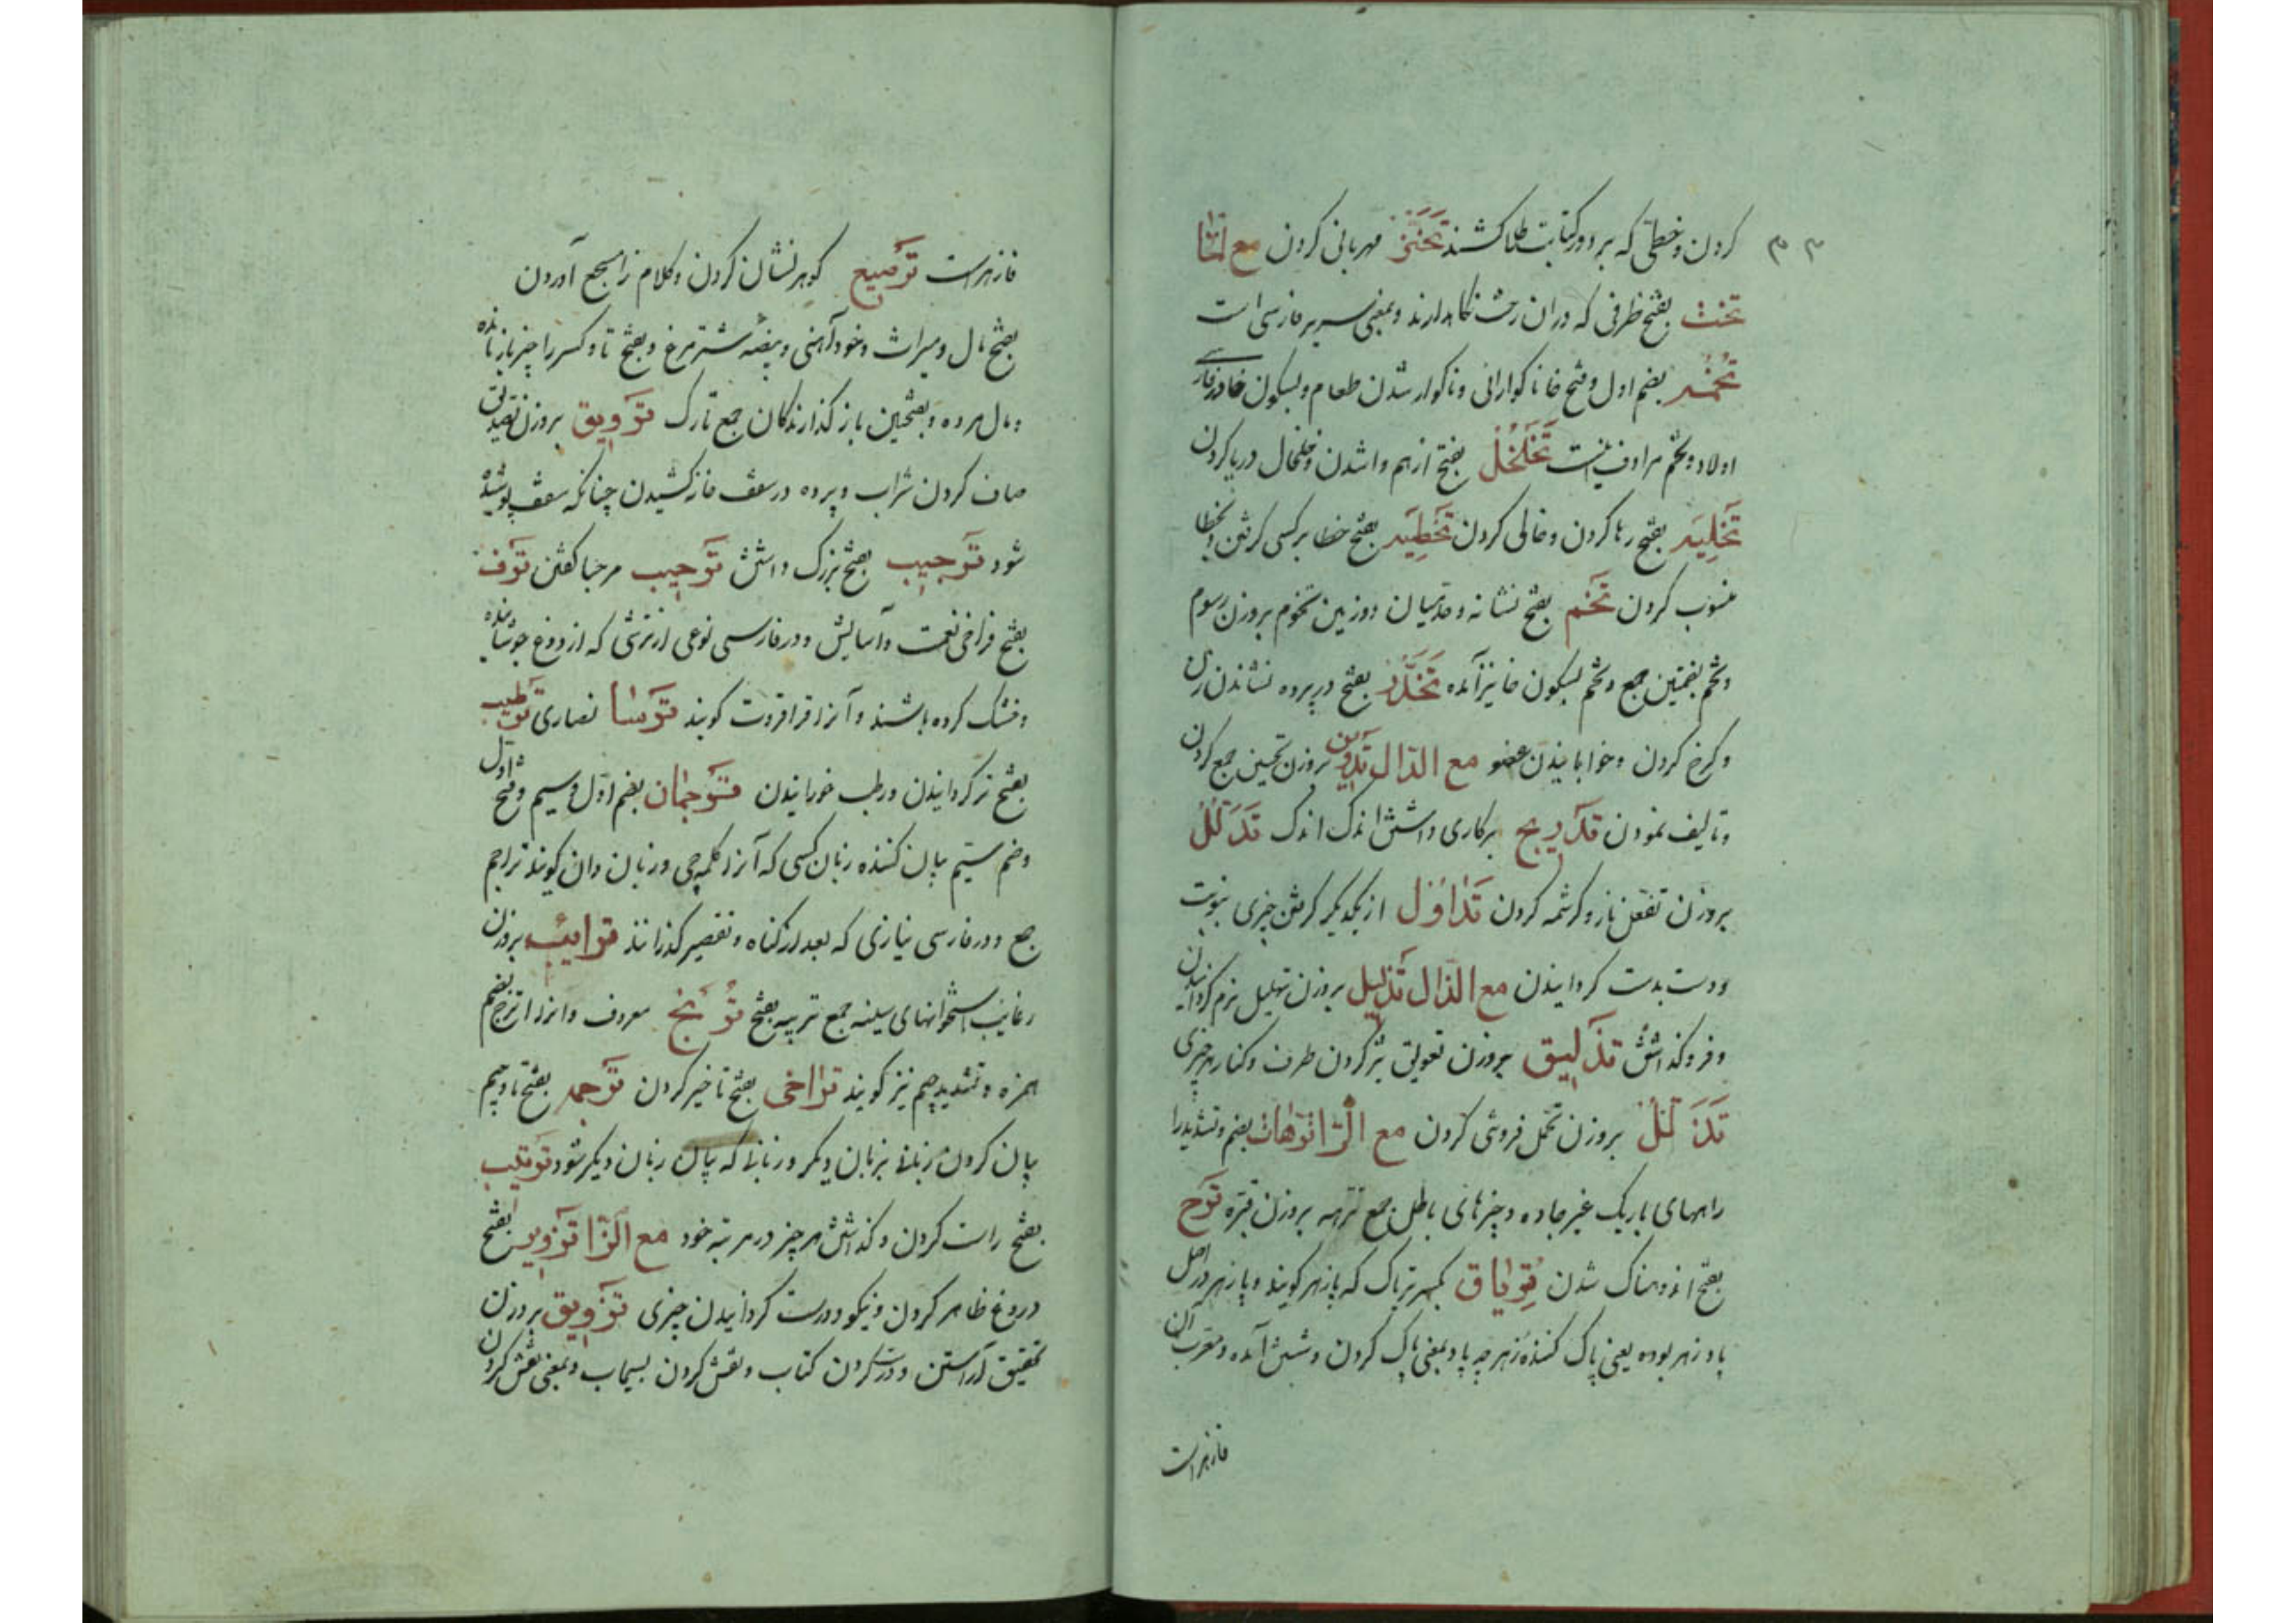 کردن و خطی که بر دور کتابت طلا کشند تحنن مهربانی کردن مع
تخت بفتح ظرفی که دران رخت نکاهدارند و بمعنی سریر فارسی است
تخمه بضم اول و فتح خا ناکوارائی و ناکوار شدن طعام و بسکون خا در فارسی
اولاد و تخم مرادف تخلخل بفتح ازهم واشدن و خلخال درپا کردن
تخلیه بفتح رها کردن و خالی کردن تخطیه بفتح خطا بر کسی کرفتن و بخطا
منسوب کردن تخم بفتح نشانه و حد میان دو زمین تخوم بروزن رسوم
و تخم بضمتین جمع و تخم بسکون خا نیز آمده تخدر بفتح در پرده نشاندن زن
و کرخ کردن و خوابانیدن عضو مع الدال تدوین بروزن تحسین جمع کردن
و تالیف نمودن تدریج برکاری داشتن اندک اندک تدلل
بروزن تفعل ناز و کرشمه کردن تداول از یکدیکر کرفتن چیزی بنوبت
و دست بدست کردانیدن مع الذال تذلیل بروزن تهلیل نرم کردانیدن
و فروکذاشتن تذلیق بروزن تعویق تیز کردن طرف و کناره هر چیزی
تذلل بروزن تحمل فروشی کردن مع الرا ترهات بضم و تشدید را
راههای باریک غیر جاده و چیزهای باطل جمع ترهه بروزن قبره ترح
بفتح اندوهناک شدن تریاق بکسر تریاک که پازهر کویند و پازهر در اصل
پاد زهر بوده یعنی پاک کننده زهر چه پاد بمعنی پاک کردن و شستن آمده و معرب آن
فازهراست
فازهراست ترصیع کوهر نشان کردن و کلام را سجع آوردن
بفتح مال و میراث و خود آهنی و بیضه شترمرغ و بفتح تا و کسر را چیز بازمانده
و مال مرده و بفتحین باز کذارندکان جمع تارک ترویق بروزن تصدیق
صاف کردن شراب و پرده در سقف خانه کشیدن چنانکه سقف پوشیده
شود ترجیب بفتح بزرک داشتن ترحیب مرحبا کفتن ترف
بفتح فراخی نعمت و آسایش و در فارسی نوعی از ترشی که از دوغ جوشانده
و خشک کرده باشند و آنرا قراقروت کویند ترسا نصاری ترطیب
بفتح تر کردانیدن و رطب خورانیدن ترجمان بضم اول و سیم و فتح اول
و ضم سیم بیان کننده زبان کسی که آنرا کلمه چی و زبان دان کویند تراجم
جمع و در فارسی نیازی که بعد از کناه و تقصیر کذرانند ترائب بروزن
رغایب استخوانهای سینه جمع تریبه بفتح ترنج معروف و انرا اترج بضم
همزه و تشدید جیم نیز کویند تراخی بفتح تاخیر کردن ترجمه بفتح تا و جیم
بیان کردن زبانی بزبان دیکر و زبانی که بیان زبان دیکر شود ترتیب
بفتح راست کردن و کذاشتن هر چیز در مرتبه خود مع الزا تزویر بفتح
دروغ ظاهر کردن و نیکو و درست کردانیدن چیزی تزویق بروزن
تحقیق آراستن و درست کردن کتاب و نقش کردن بسیماب و بمعنی نقش کردن